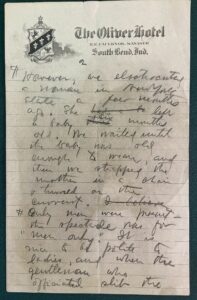 The Oliver Hotel
South Bend, Ind.
2
¶ However, we electrocuted
a woman in New York
State a few months
ago. She left
a baby months
old. We waited until
the baby was old
enough to wean, and
then we strapped the
mother in a chair
& turned on the
current.
¶ Only men were present
the spectacle was for
"men only". It is
nice to be polite to
ladies, and when the
gentlemen who
officiated slit the